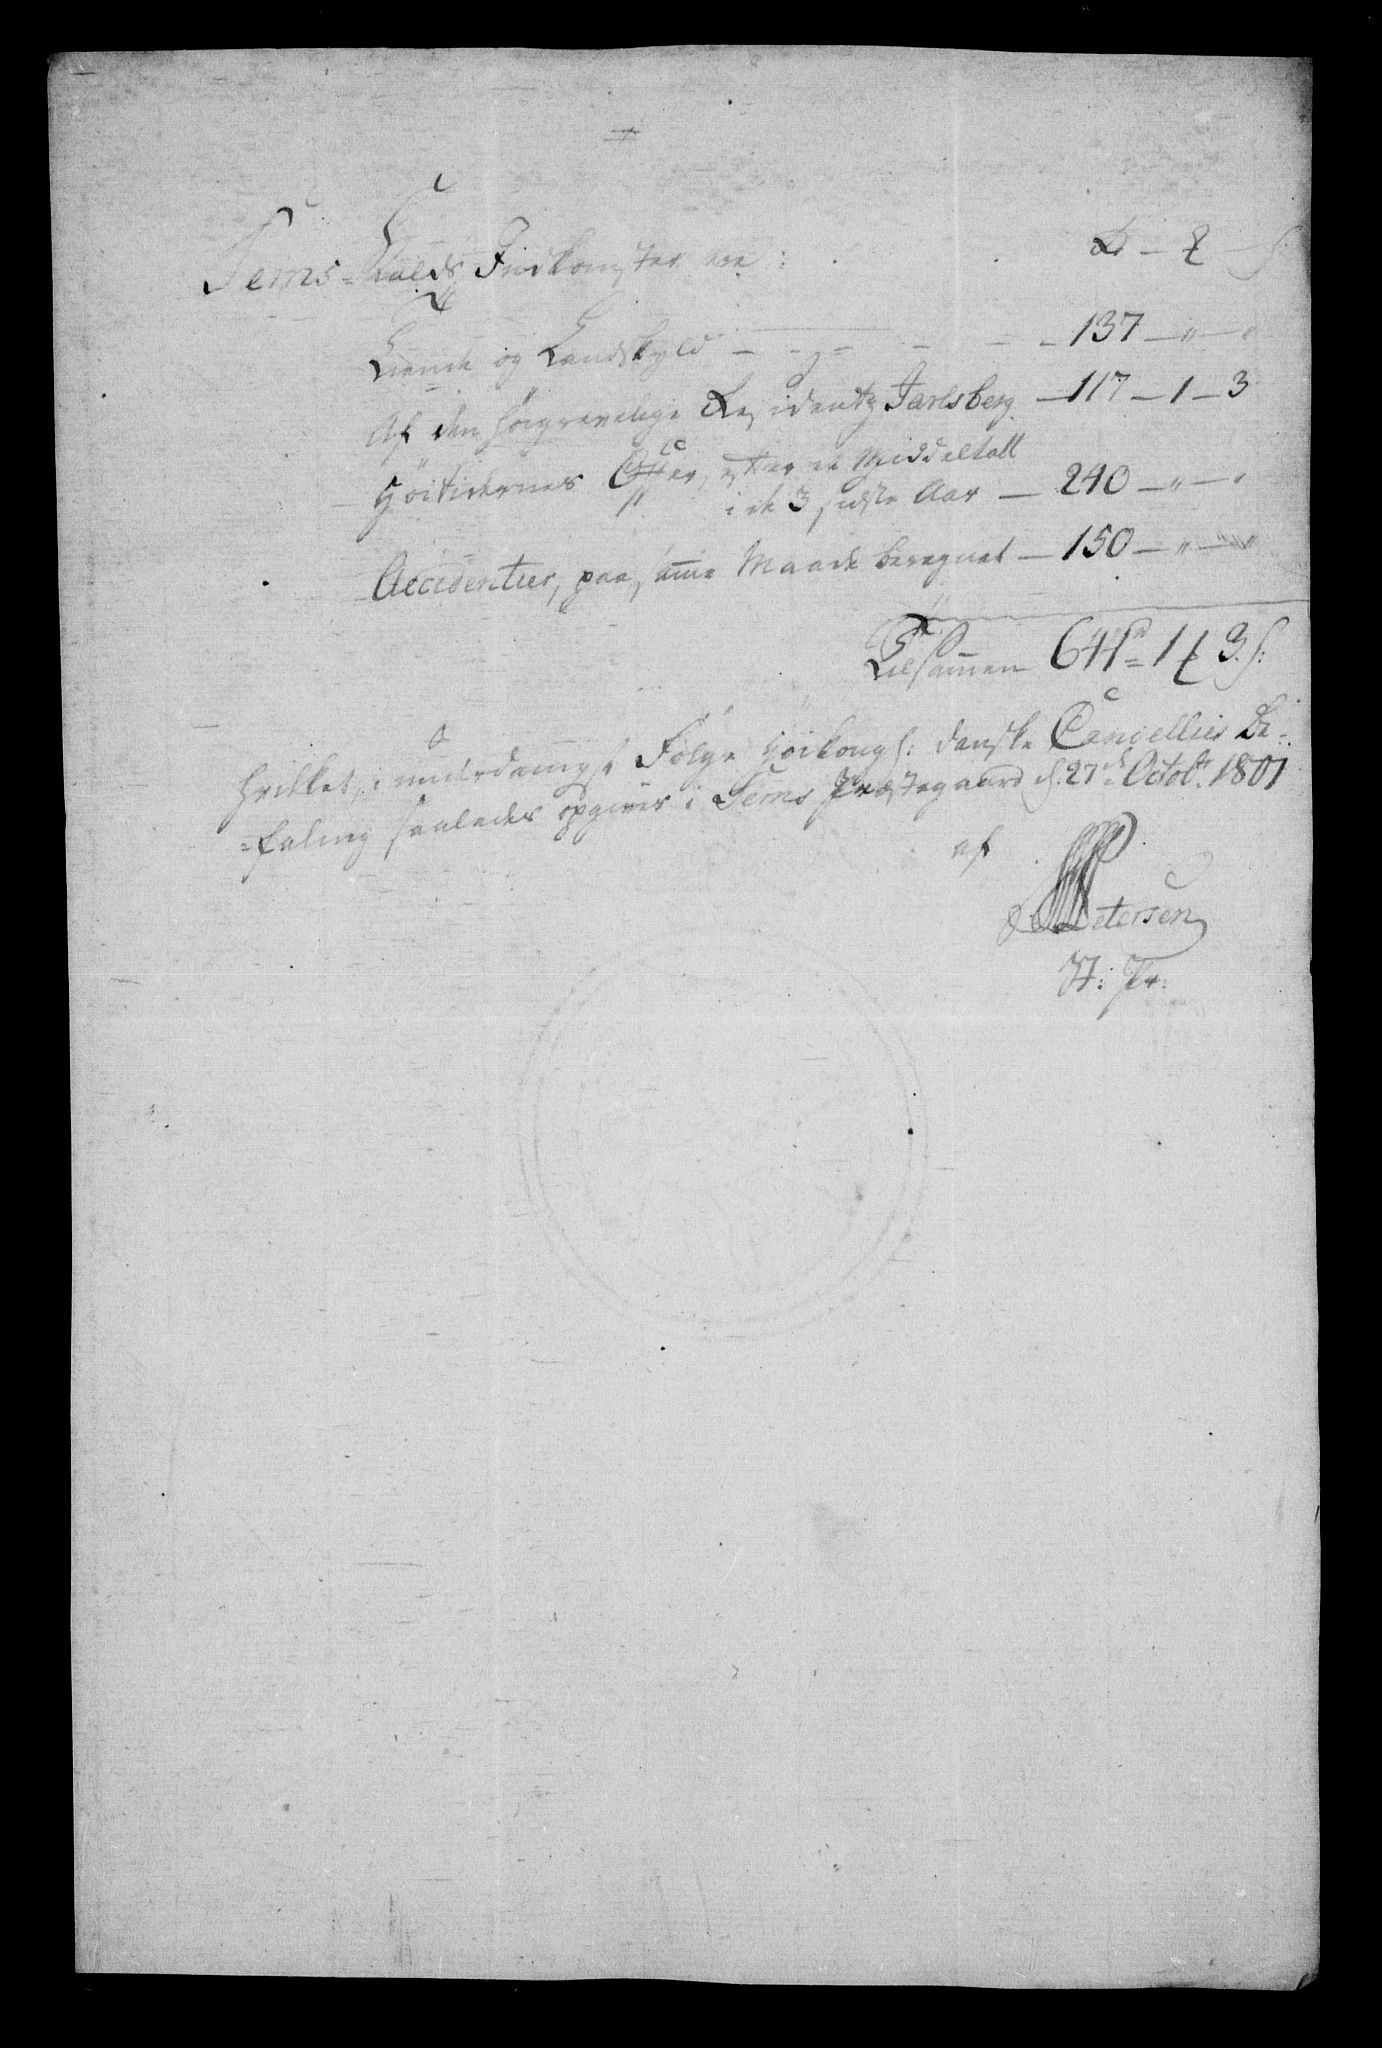 Sems-Kalds Indkomster ere: Rd — ℔ — s
Tiende og Landskyld — — — — 137 — " — "
Af den höigrevelige Residentz Jarlsberg — 117 — 1 — 3
Höitidernes Offer, efter et Middeltall
i de 3 sidste Aar — 240 — " — "
Accidentier, paa samme Maade beregnet — 150 — " — "
Tilsammen 644 rd 1 ℔ 3 s:
Hvilket, i underdanigst Følge höikongl: danske Cancellies Be-
=faling saaledes opgives i Sems Præstegaard d. 27de Octobr. 1801
af
Petersen